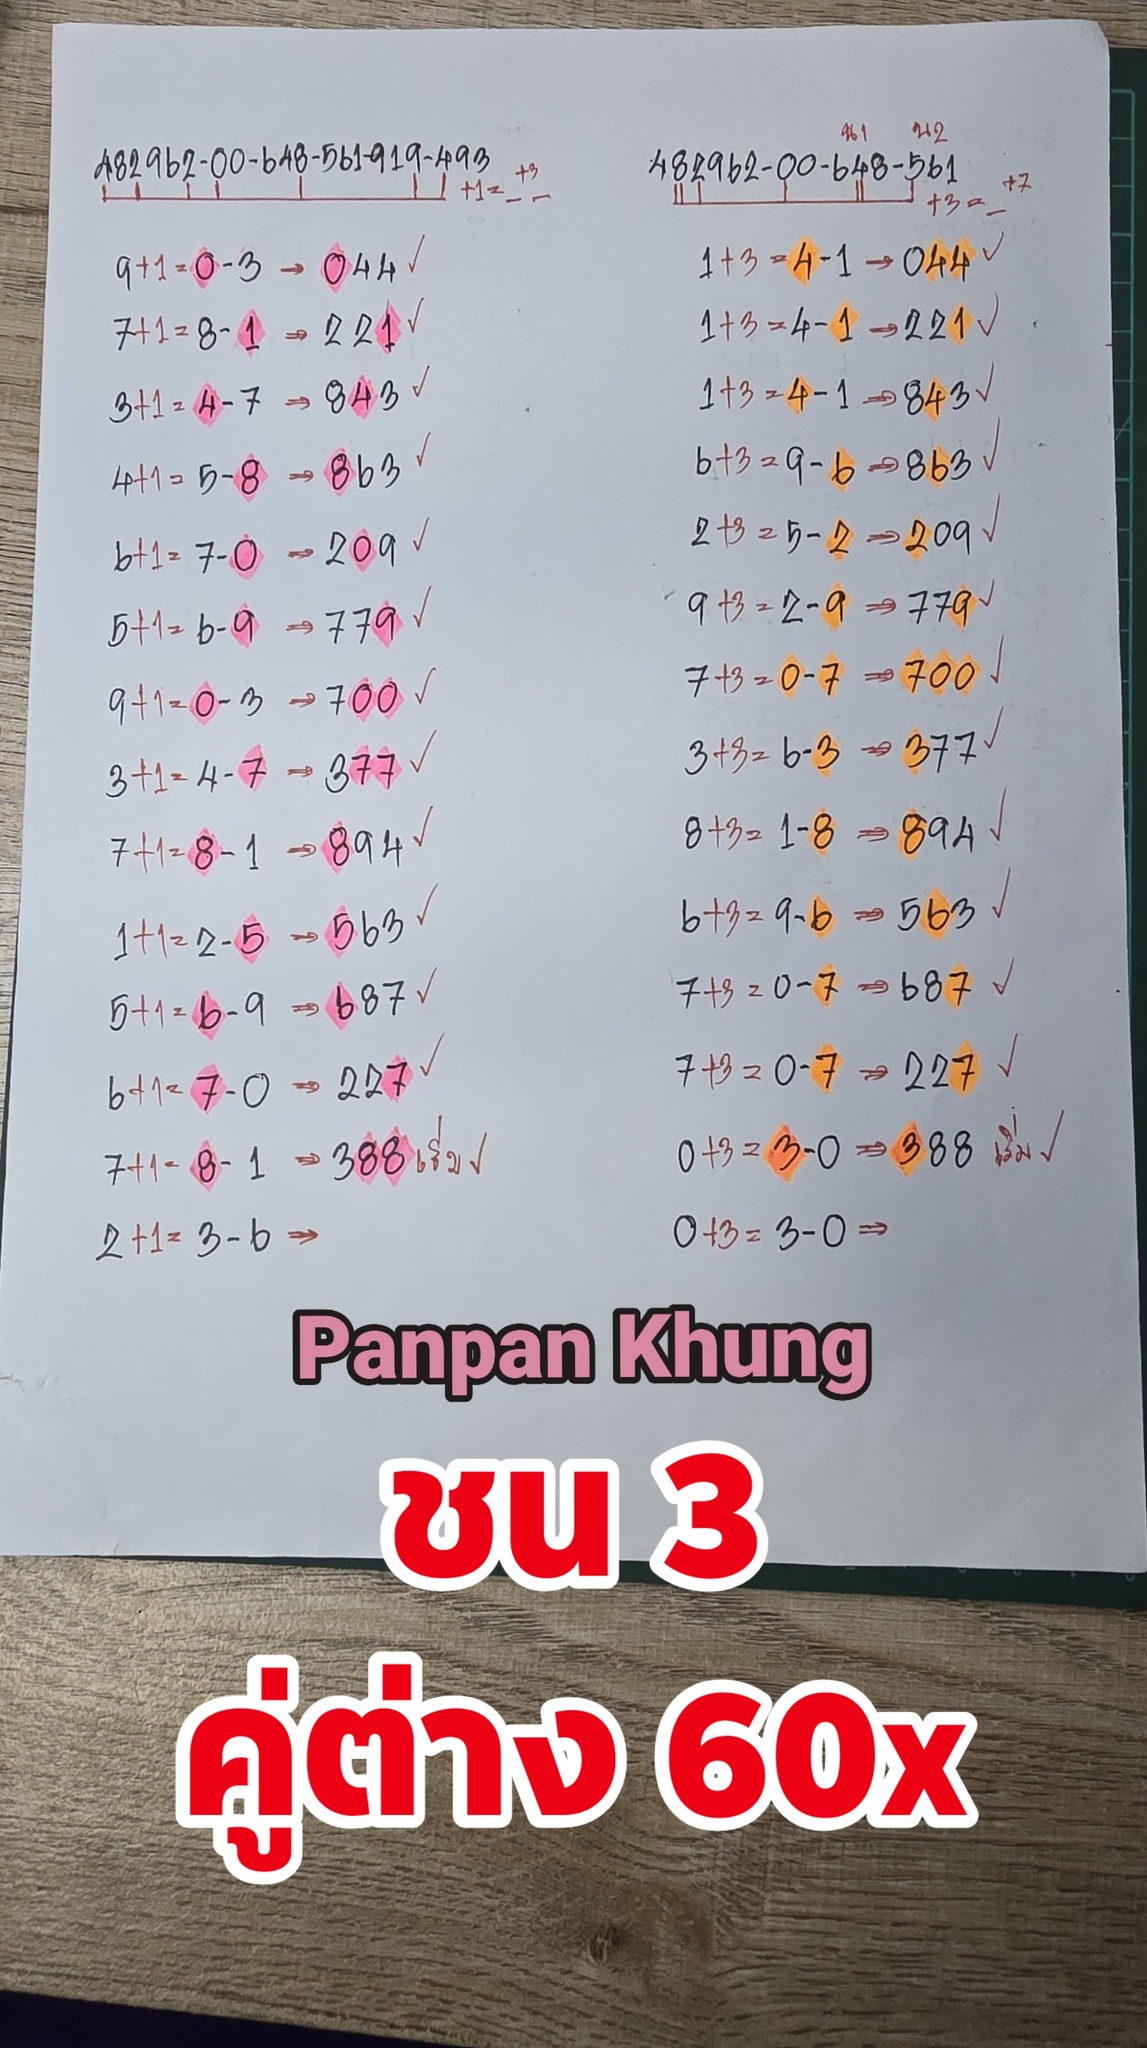 482962-00-648-561-919-493
+1=_ _ +3
9+1=0-3 → 044 ✓
7+1=8-1 ⇒ 221 ✓
3+1=4-7 ⇒ 843 ✓
4+1=5-8 ⇒ 863 ✓
6+1=7-0 ⇒ 209 ✓
5+1=6-9 ⇒ 779 ✓
9+1=0-3 ⇒ 700 ✓
3+1=4-7 ⇒ 377 ✓
7+1=8-1 ⇒ 894 ✓
1+1=2-5 ⇒ 563 ✓
5+1=6-9 ⇒ 687 ✓
6+1=7-0 ⇒ 227 ✓
7+1=8-1 ⇒ 388 เริ่ม ✓
2+1=3-6 ⇒
น1 น2
482962-00-648-561
+3=_ +7
1+3=4-1 ⇒ 044 ✓
1+3=4-1 ⇒ 221 ✓
1+3=4-1 ⇒ 843 ✓
6+3=9-6 ⇒ 863 ✓
2+3=5-2 ⇒ 209 ✓
9+3=2-9 ⇒ 779 ✓
7+3=0-7 ⇒ 700 ✓
3+3=6-3 ⇒ 377 ✓
8+3=1-8 ⇒ 894 ✓
6+3=9-6 ⇒ 563 ✓
7+3=0-7 ⇒ 687 ✓
7+3=0-7 ⇒ 227 ✓
0+3=3-0 ⇒ 388 เริ่ม ✓
0+3=3-0 ⇒
Panpan Khung
ชน 3
คู่ต่าง 60x